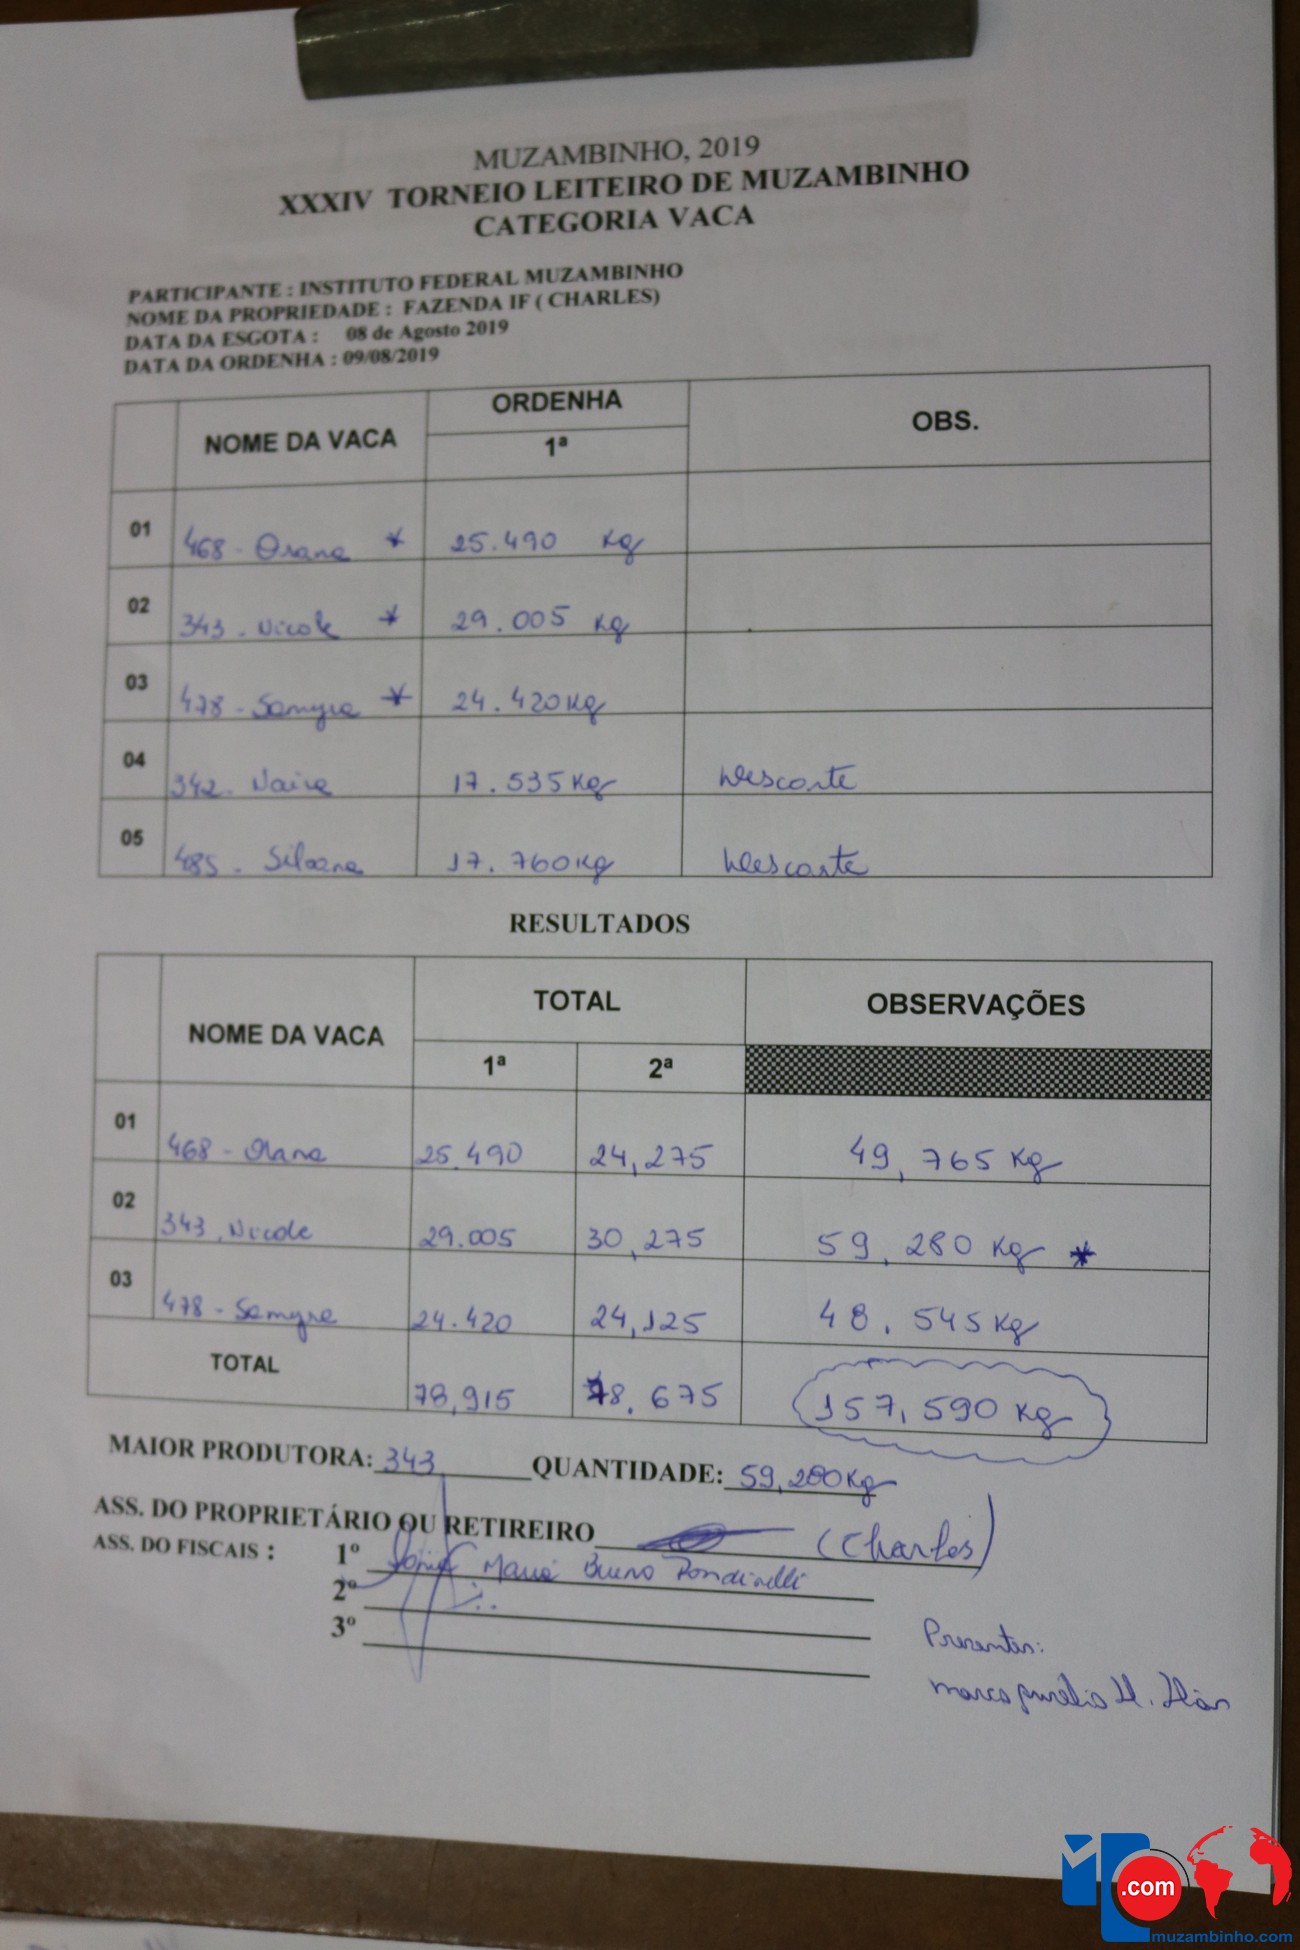 MUZAMBINHO, 2019
XXXIV TORNEIO LEITEIRO DE MUZAMBINHO
CATEGORIA VACA
PARTICIPANTE : INSTITUTO FEDERAL MUZAMBINHO
NOME DA PROPRIEDADE : FAZENDA IF ( CHARLES)
DATA DA ESGOTA : 08 de Agosto 2019
DATA DA ORDENHA : 09/08/2019
NOME DA VACA ORDENHA OBS.
1ª
01 468 - Osana * 25.490 Kg
02 343 - Nicole * 29.005 Kg
03 478 - Samyra * 24.420 Kg
04 342 - Naira 17.535 Kg Descarte
05 485 - Silvana 17.760 Kg Descarte
RESULTADOS
NOME DA VACA TOTAL OBSERVAÇÕES
1ª 2ª
01 468 - Osana 25.490 24,275 49,765 Kg
02 343. Nicole 29.005 30,275 59,280 Kg *
03 478 - Samyra 24.420 24,125 48,545 Kg
TOTAL 78,915 78,675 157,590 Kg
MAIOR PRODUTORA: 343 QUANTIDADE: 59,280 Kg
ASS. DO PROPRIETÁRIO OU RETIREIRO (Charles)
ASS. DO FISCAIS : 1º Maria Bueno
2º
3º
Presentes:
Marco Aurélio
.com
muzambinho.com